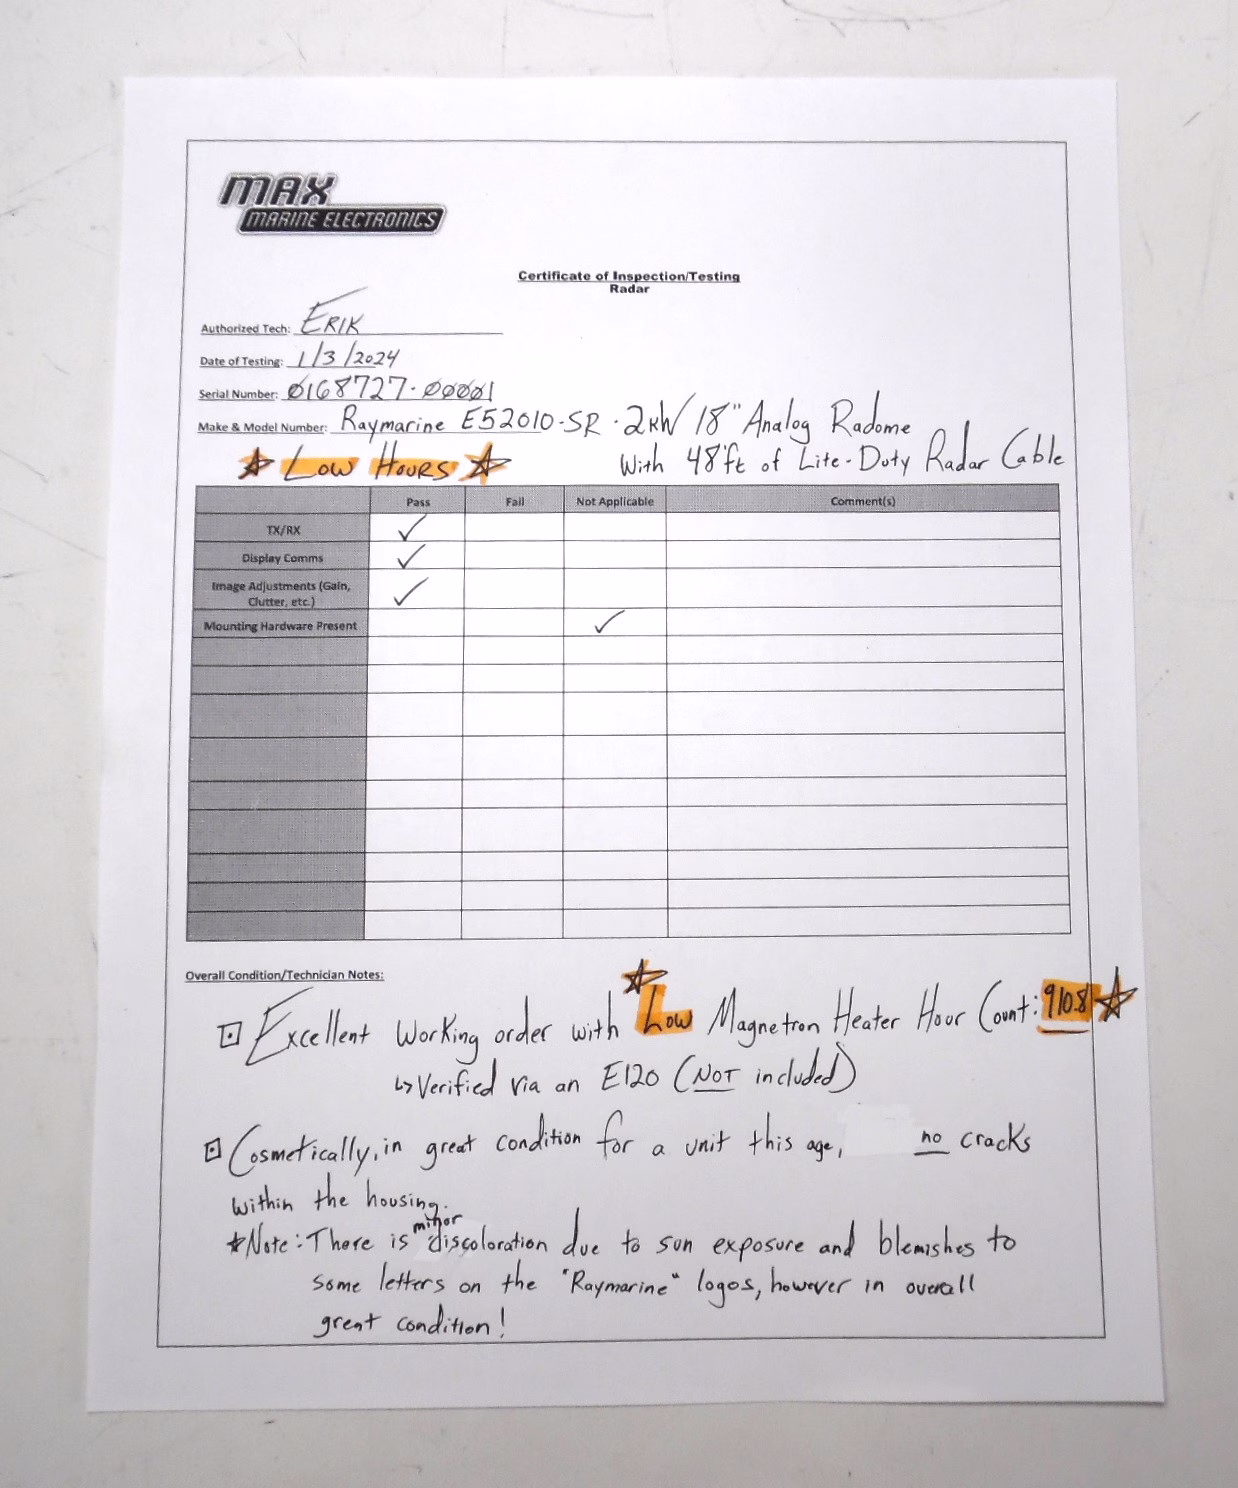 MAX
MARINE ELECTRONICS
Certificate of Inspection/Testing
Radar
Authorized Tech: ERIK
Date of Testing: 1/3/2024
Serial Number: 0168727-00001
Make & Model Number: Raymarine E52010-SR - 2kW 18" Analog Radome
LOW HOURS With 48'ft of Lite-Duty Radar Cable
Pass Fail Not Applicable Comment(s)
TX/RX ✓
Display Comms ✓
Image Adjustments (Gain,
Clutter, etc.) ✓
Mounting Hardware Present ✓
Overall Condition/Technician Notes:
Excellent Working order with Low Magnetron Heater Hour Count: 910.8
↳ Verified via an E120 (NOT included)
Cosmetically, in great condition for a unit this age, no cracks
within the housing.
*Note: There is minor discoloration due to sun exposure and blemishes to
some letters on the "Raymarine" logos, however in overall
great condition!